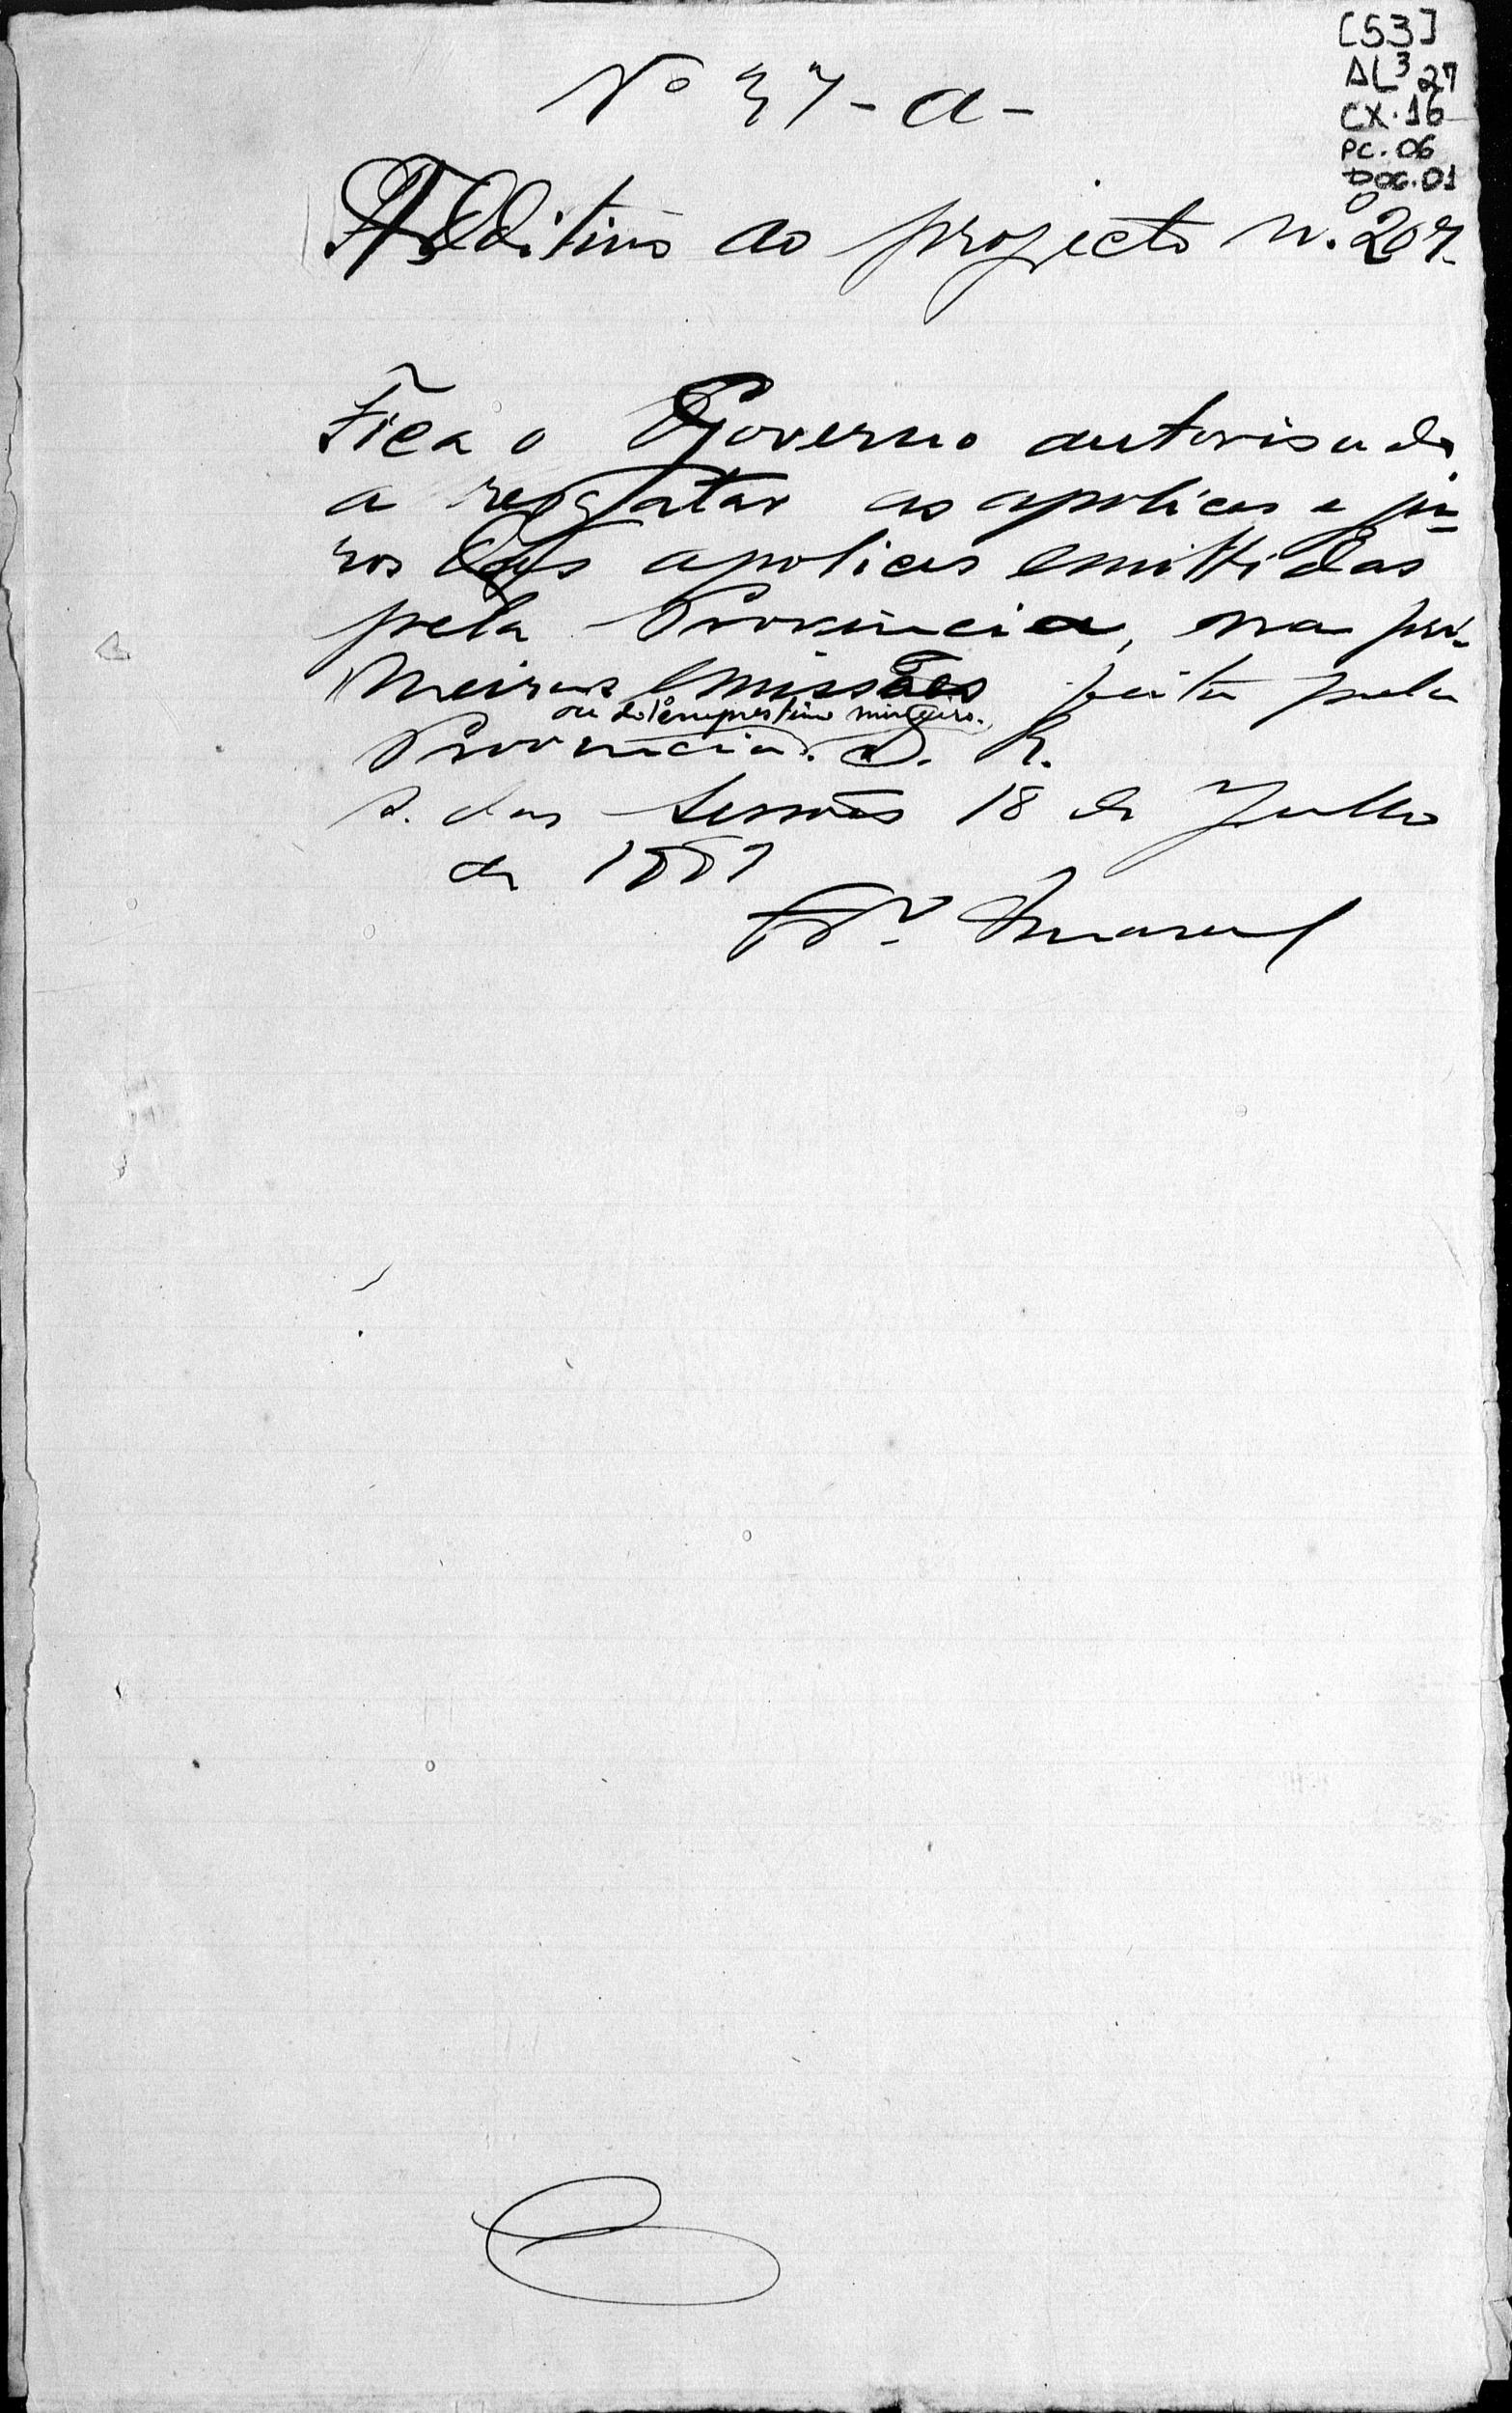 [53]
AL3 27
CX. 16
PC. 06
DOC. 01
Nº 37 - a -
Additivo ao projecto n.º 207.
Fica o Governo autorisado
a resgatar as apolices e ju-
ros das apolices emittidas
pela Provincia, na pri-
meiras emissões feita pela
ou do emprestimo mineiro.
Provincia. S. R.
S. das Sessões 18 de Julho
de 1887
Amaral